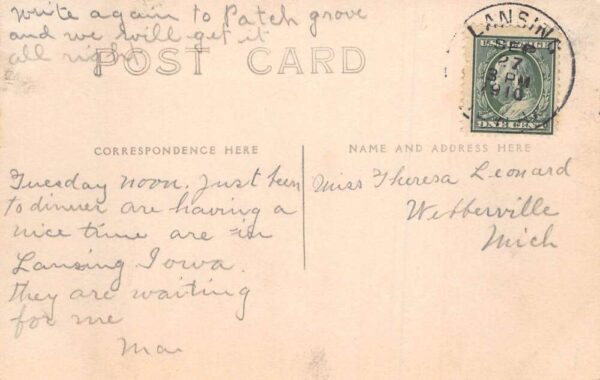 write again to Patch grove
and we will get it
all right
POST CARD
LANSING
SEP
27
8 PM
1910
U.S. POSTAGE
ONE CENT
CORRESPONDENCE HERE
NAME AND ADDRESS HERE
Tuesday noon. Just been
to dinner are having a
nice time are in
Lansing Iowa.
They are waiting
for me
Ma
Miss Theresa Leonard
Webberville
Mich